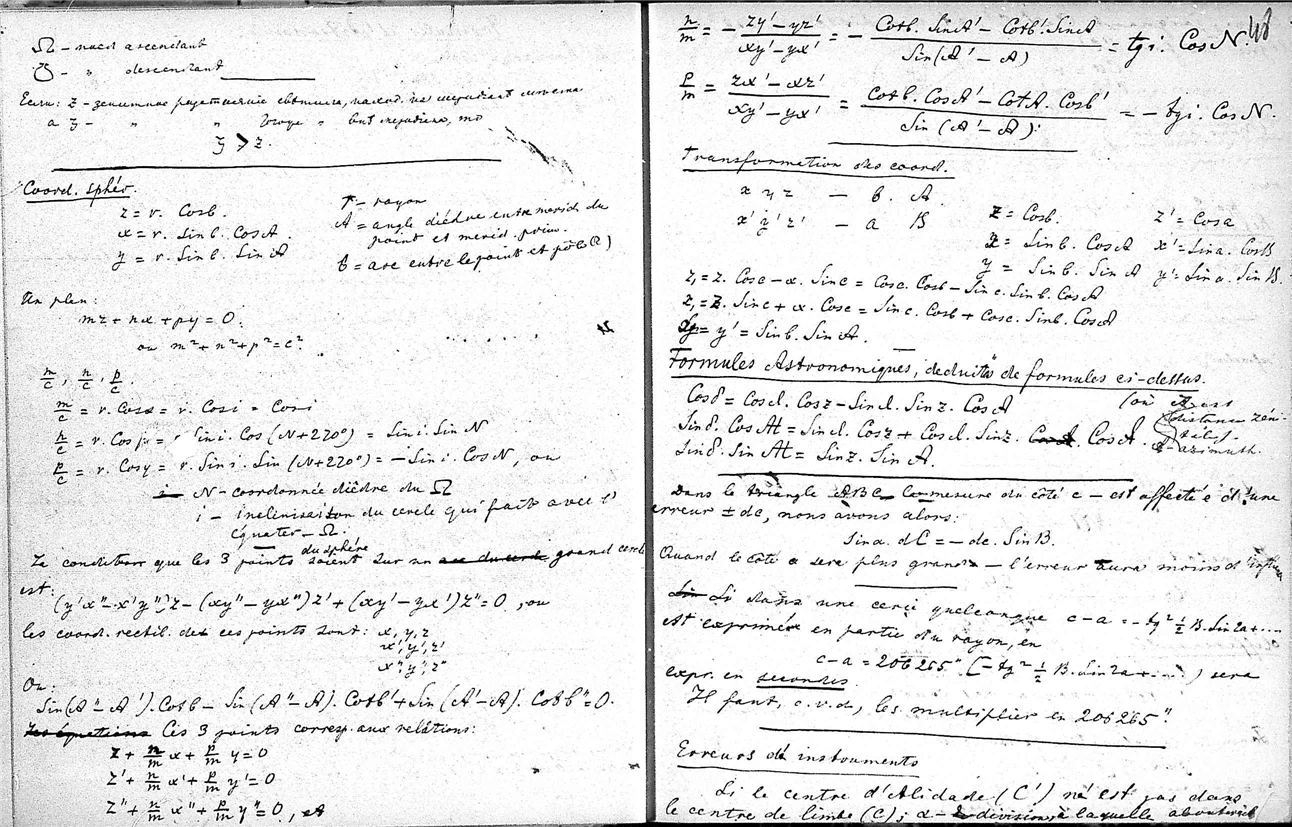 ☊ – nœud ascendant
☋ – " descendant
Если: z –
а ζ – " " " "
ζ > z.
Coord. sphér.
z = r. Cosb.
x = r. Sinb. CosA.
y = r. Sinb. SinA
r – rayon
A = angle dièdre entre merid. du
point et merid. prim.
b = arc entre le point et pôle)
Un plan:
mz + nx + py = 0.
ou m² + n² + p² = c².
m/c, n/c, p/c.
m/c = r. Cosα = r. Cosi = Cosi
n/c = r. Cosβ = r Sini. Cos(N+270°) = Sini. SinN
p/c = r. Cosγ = r. Sini. Sin(N+270°) = –Sini. CosN, ou
N – coordonnée dièdre du ☊
i – inclinaison du cercle qui fait avec l'
équater – ☊.
La condition que les 3 points soient sur un grand cercle
du sphére
est:
(y'x" – x'y")z – (xy" – yx")z' + (xy' – yx')z" = 0, ou
les coord. rectil. de ces points sont: x, y, z
x', y', z'
x", y", z"
Ou:
Sin(A" – A'). Cotb – Sin(A" – A). Cotb' + Sin(A' – A). Cotb" = 0.
Ces 3 points corresp. aux relations:
z + n/m x + p/m y = 0
z' + n/m x' + p/m y' = 0
z" + n/m x" + p/m y" = 0, et
48
n/m = – (zy' – yz')/(xy' – yx') = – (Cotb. SinA' – Cotb'. SinA)/Sin(A' – A) = tgi. CosN.
p/m = (zx' – xz')/(xy' – yx') = (Cotb. CosA' – CotA. Cosb')/Sin(A' – A) = – tgi. CosN.
Transformation des coord.
x y z – b. A.
x' y' z' – a B
z = Cosb. z' = Cosa
x = Sinb. CosA x' = Sina. CosB
y = Sinb. SinA y' = Sina. SinB.
z, = z. Cosc – x. Sinc = Cosc. Cosb – Sinc. Sinb. CosA
z, = z. Sinc + x. Cosc = Sinc. Cosb + Cosc. Sinb. CosA
y = y' = Sinb. SinA.
Formules Astronomiques, deduits de formules ci-dessus.
Cosδ = Cosl. Cosz – Sinl. Sinz. CosA
Sinδ. CosAt = Sinl. Cosz + Cosl. Sinz. CosA.
Sinδ. SinAt = Sinz. SinA.
(ou z est
distance zéni-
tale,
a – azimuth.
Dans le triangle ABC la mesure du côté c – est affectée d'une
erreur ± dc, nous avons alors:
Sina. dC = – dc. SinB.
Quand le côté a sera plus grand – l'erreur aura moins d'influen
Si dans une quelconque c – a = – tg² ½ B. Sin2a + ....
est exprimée en partie du rayon, en
c – a = 206265" (– tg² ½ B. Sin2a + ...) sera
expr. en secondes.
Il faut, c.v.d., les multiplier en 206265".
Erreurs d' instruments
Si le centre d'Alidade (C') n'est pas dans
le centre de limbe (C); α – division, à laquelle